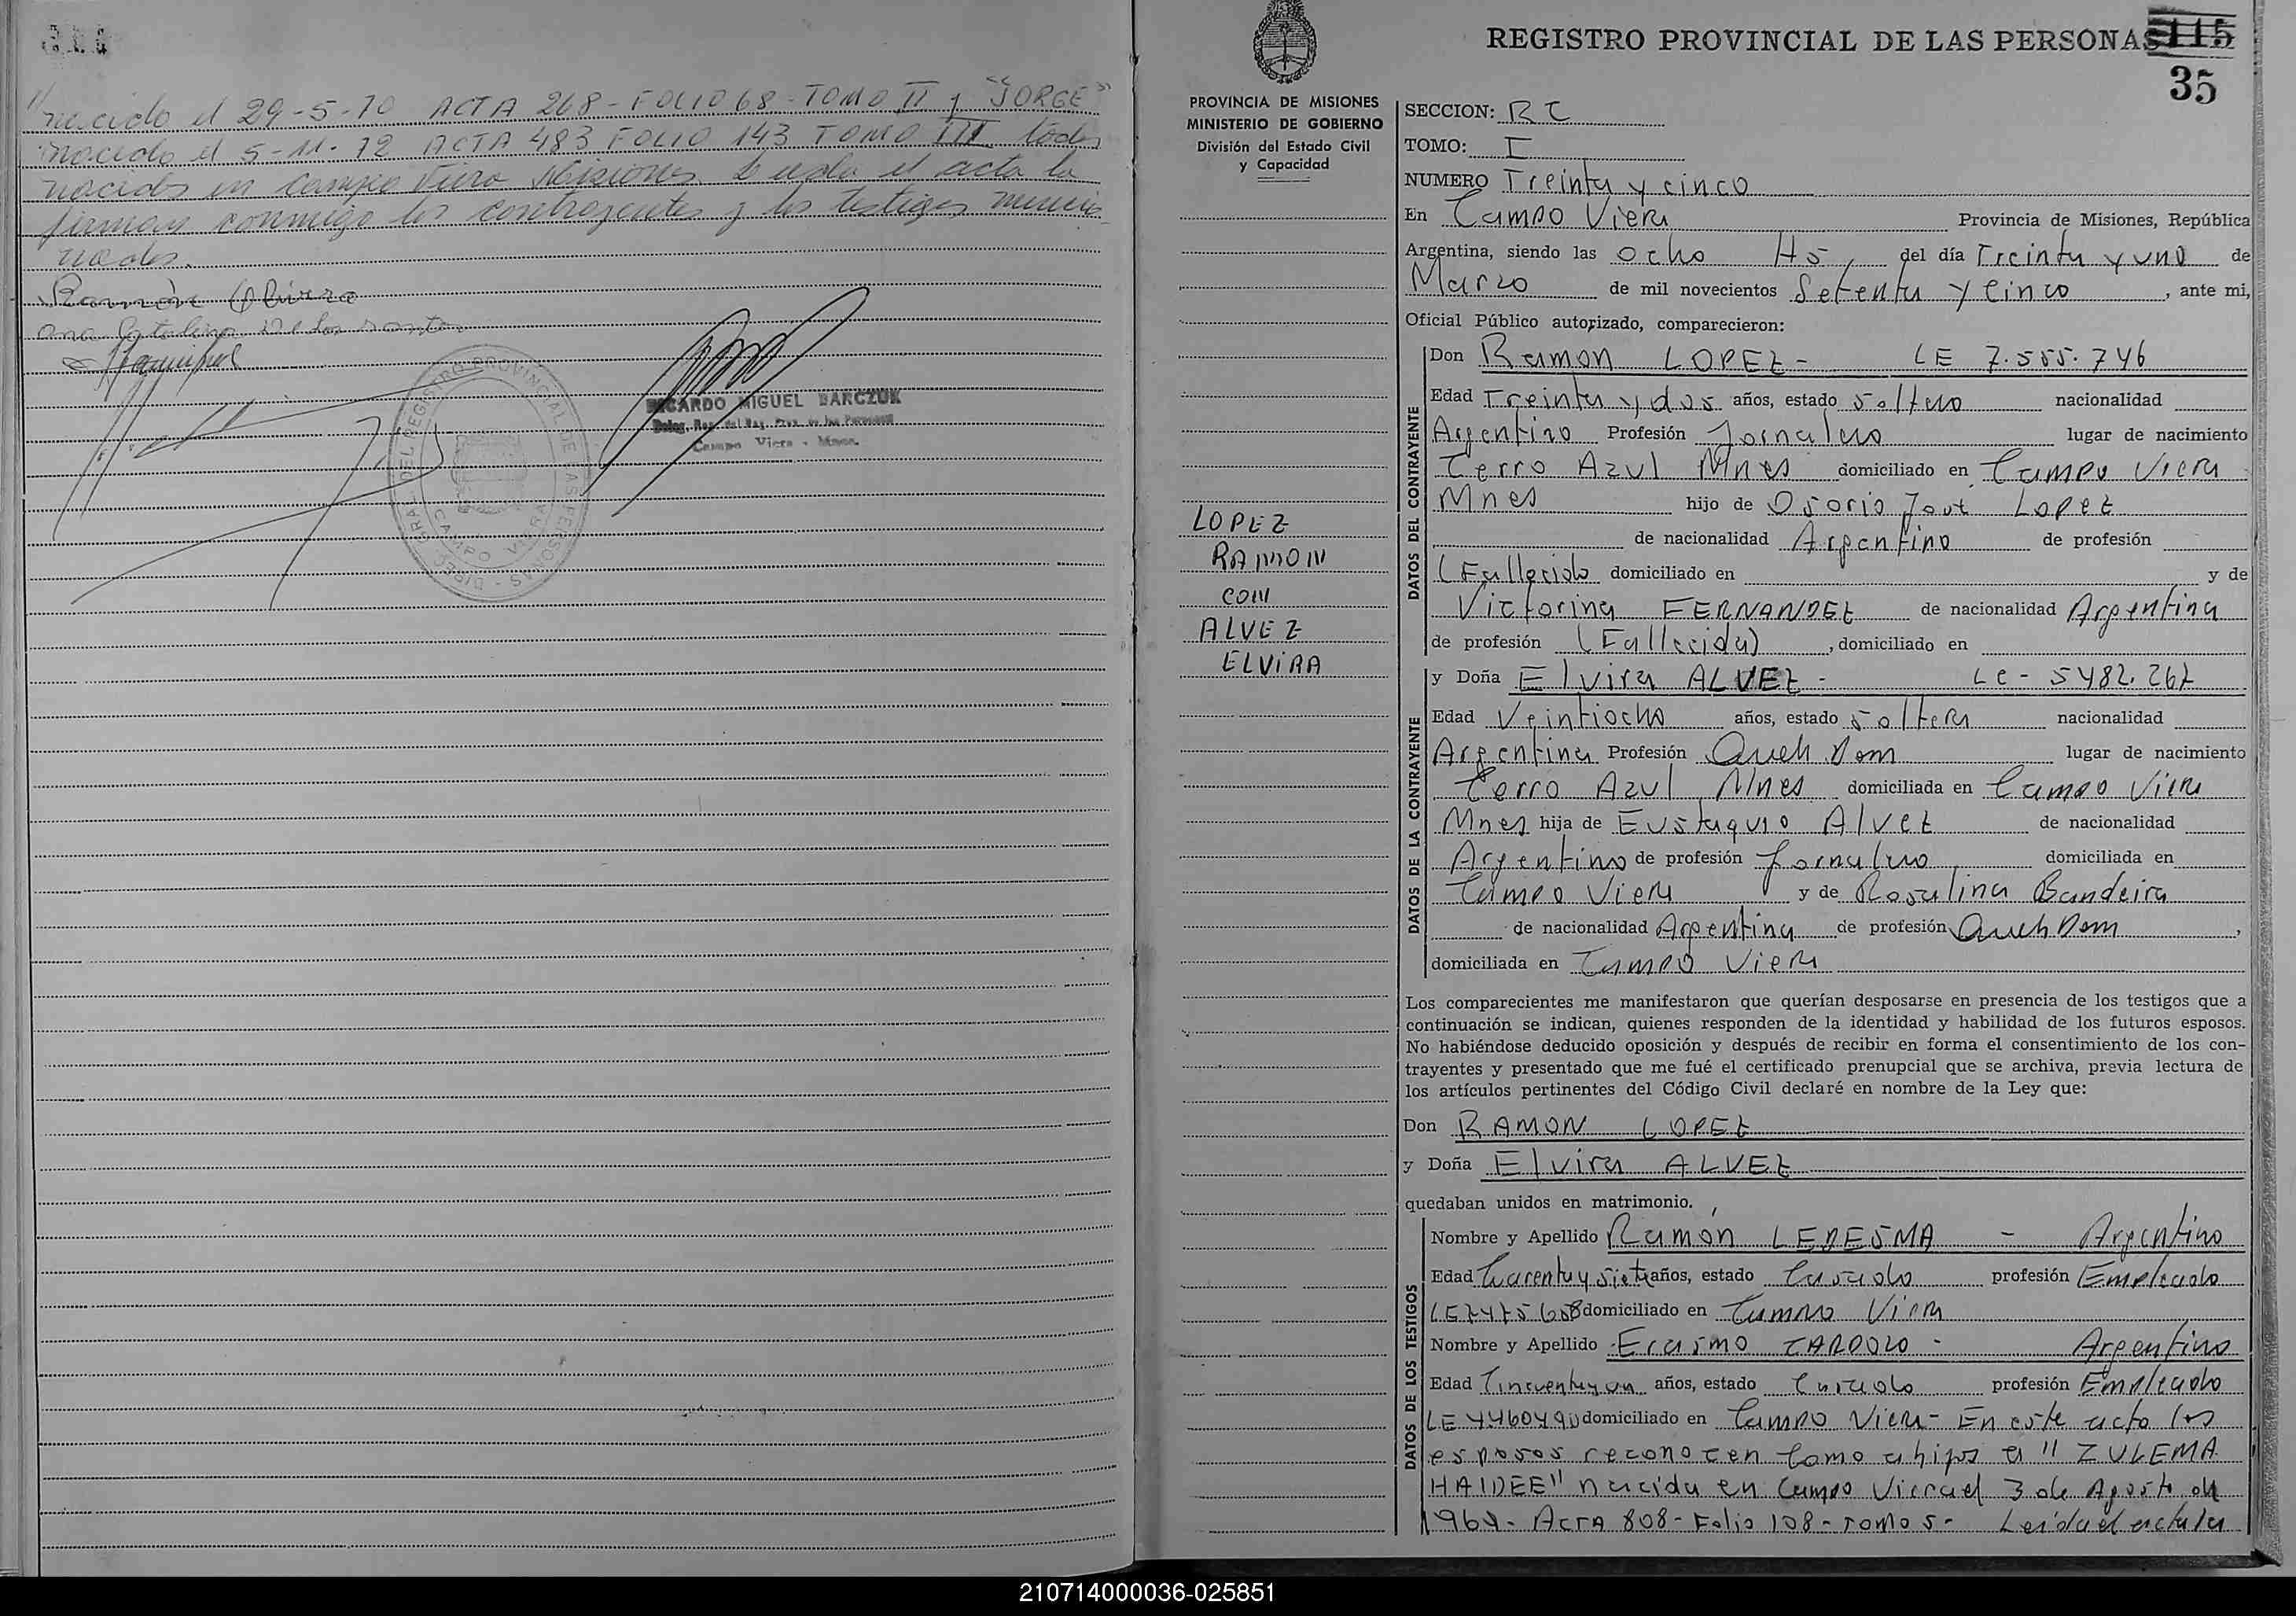 nacido el 29-5-70 ACTA 268 - FOLIO 68 - TOMO II y "JORGE"
nacido el 5-11-72 ACTA 483 FOLIO 143 TOMO III todos
nacidos en Campo Viera Misiones. Leida el acta la
firman conmigo los contrayentes y los testigos mencio
nados.
Ramón Olivera
Ana Catalina De los Santos
REGISTRO PROVINCIAL DE LAS PERSONAS
CAMPO VIERA
RICARDO MIGUEL BARCZUK
Deleg. Reg. del Reg. Prov. de las Personas
Campo Viera - Mnes.
REGISTRO PROVINCIAL DE LAS PERSONAS
115
35
PROVINCIA DE MISIONES
MINISTERIO DE GOBIERNO
División del Estado Civil
y Capacidad
LOPEZ
RAMON
CON
ALVEZ
ELVIRA
SECCION: RC
TOMO: I
NUMERO Treinta y cinco
En Campo Viera Provincia de Misiones, República
Argentina, siendo las ocho Hs, del día Treinta y uno de
Marzo de mil novecientos Setenta y Cinco, ante mi,
Oficial Público autorizado, comparecieron:
DATOS DEL CONTRAYENTE
Don Ramon LOPEZ - LE 7.555.746
Edad Treinta y dos años, estado soltero nacionalidad
Argentino Profesión Jornalero lugar de nacimiento
Cerro Azul Mnes domiciliado en Campo Viera
Mnes hijo de Osorio José Lopez
de nacionalidad Argentino de profesión
(Fallecido domiciliado en y de
Victorina FERNANDEZ de nacionalidad Argentina
de profesión (Fallecida), domiciliado en
DATOS DE LA CONTRAYENTE
y Doña Elvira ALVEZ - LC - 5482.267
Edad Veintiocho años, estado soltera nacionalidad
Argentina Profesión Queh Dom lugar de nacimiento
Cerro Azul Mnes domiciliada en Campo Viera
Mnes hija de Eustaquio Alvez de nacionalidad
Argentino de profesión Jornalero domiciliada en
Campo Viera y de Rosalina Bandeira
de nacionalidad Argentina de profesión Queh Dom,
domiciliada en Campo Viera
Los comparecientes me manifestaron que querían desposarse en presencia de los testigos que a
continuación se indican, quienes responden de la identidad y habilidad de los futuros esposos.
No habiéndose deducido oposición y después de recibir en forma el consentimiento de los con-
trayentes y presentado que me fué el certificado prenupcial que se archiva, previa lectura de
los artículos pertinentes del Código Civil declaré en nombre de la Ley que:
Don RAMON LOPEZ
y Doña Elvira ALVEZ
quedaban unidos en matrimonio.
DATOS DE LOS TESTIGOS
Nombre y Apellido Ramón LEDESMA - Argentino
Edad Cuarenta y siete años, estado Casado profesión Empleado
LE 7475658 domiciliado en Campo Viera
Nombre y Apellido Erasmo CARDOZO - Argentino
Edad Cincuenta y un años, estado Casado profesión Empleado
LE 4460490 domiciliado en Campo Viera - En este acto los
esposos reconocen como a hijos a "ZULEMA
HAIDEE" nacida en Campo Viera el 3 de Agosto de
1969 - ACTA 808 - Folio 108 - Tomo 5 - Leida el acta la
210714000036-025851